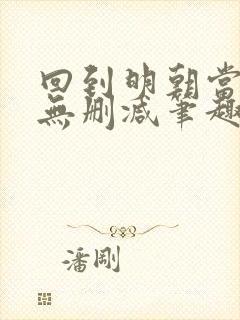 回到明朝當
無删减筆趣
潘剛